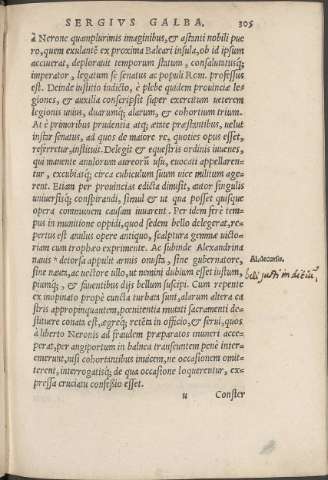 SERGIVS GALBA. 305
à Nerone quamplurimis imaginibus, & astanti nobili pue
ro, quem exulantẽ ex proxima Baleari insula, ob id ipsum
acciuerat, deplorauit temporum statum, consalutatusq;
imperator, legatum se senatus ac populi Rom. professus
est. Deinde iustitio indicto, è plebe quidem prouinciæ le-
giones, & auxilia conscripsit super exercitum ueterem
legionis unius, duarumq; alarum, & cohortium trium.
At è primoribus prudentia atq; ætate præstantibus, uelut
instar senatus, ad quos de maiore re, quoties opus esset,
referretur, instituit. Delegit & equestris ordinis iuuenes,
qui manente anulorum aureorũ usu, euocati appellaren-
tur, excubiasq; circa cubiculum suum uice militum age-
rent. Etiam per prouincias edicta dimisit, autor singulis
uniuersisq; conspirandi, simul & ut qua posset quisque
opera communem causam iuuarent. Per idem ferè tem-
pus in munitione oppidi, quod sedem bello delegerat, re-
pertus est anulus opere antiquo, scalptura gemmæ uicto-
riam cum tropheo exprimente. Ac subinde Alexandrina
nauis * detorsa appulit armis onusta, sine gubernatore,
sine nauta, ac uectore ullo, ut nemini dubium esset iustum,
piumq;, & fauentibus dijs bellum suscipi. Cum repente
ex inopinato propè cuncta turbata sunt, alarum altera ca
stris appropinquantem, pœnitentia mutati sacramenti de-
stituere conata est, ægreq; retẽti in officio, & serui, quos
à liberto Neronis ad fraudem præparatos muneri acce-
perat, per angiportum in balnea transeuntem penè inter-
emerunt, nisi cohortantibus inuicem, ne occasionem omit-
terent, interrogatisq; de qua occasione loquerentur, ex-
pressa cruciatu confessio esset.
u Conster